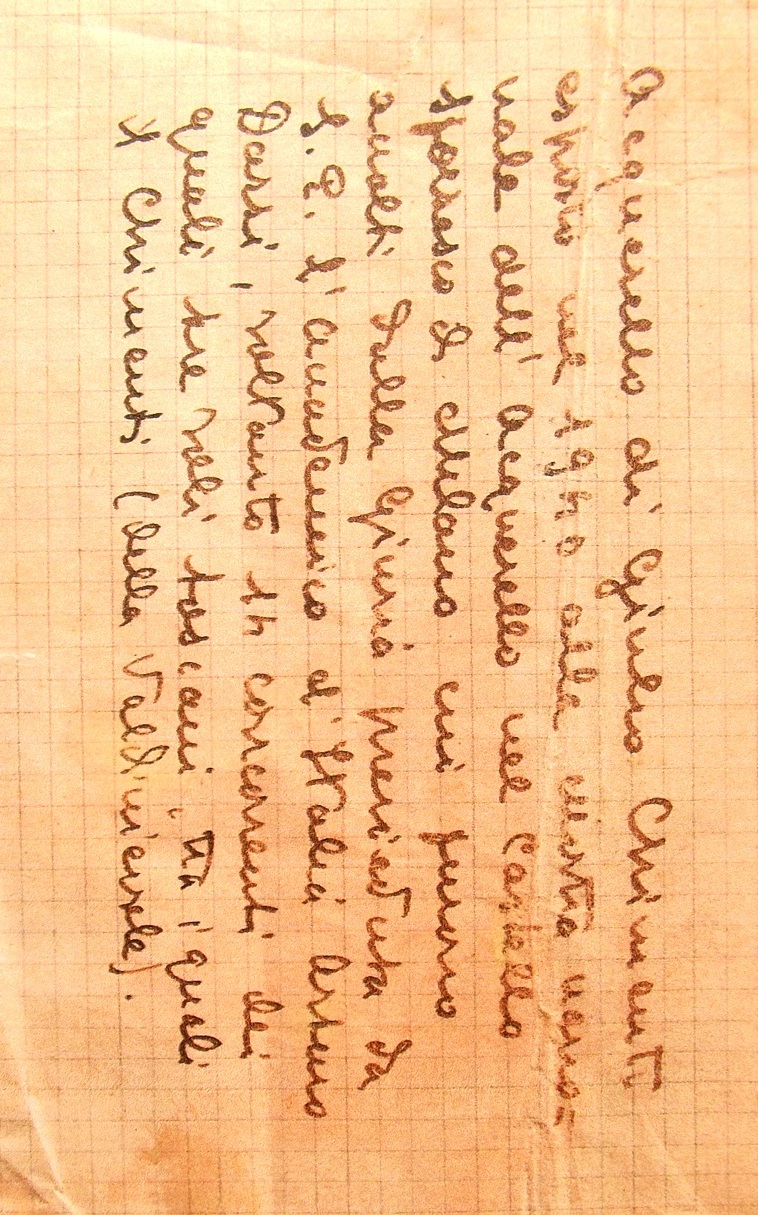 Acquerello di Giulio Chimenti
esposto nel 1940 alla mostra nazio=
nale dell'Acquerello nel Castello
Sforzesco di Milano cui furono
accolti dalla Giuria presieduta da
S.E. l'accademico d'Italia Arturo
Dazzi, soltanto 14 concorrenti dei
quali tre soli toscani, tra i quali
il Chimenti (della Valdinievole).